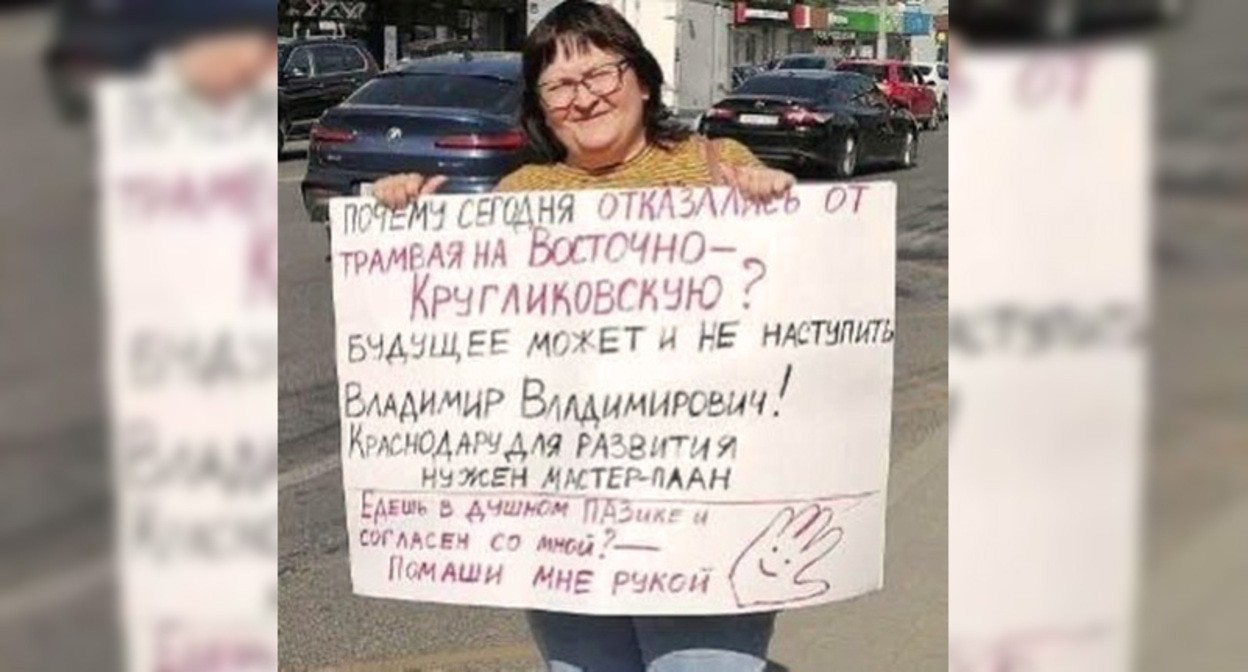 ПОЧЕМУ СЕГОДНЯ ОТКАЗАЛИСЬ ОТ
ТРАМВАЯ НА ВОСТОЧНО-
КРУГЛИКОВСКУЮ?
БУДУЩЕЕ МОЖЕТ И НЕ НАСТУПИТЬ
ВЛАДИМИР ВЛАДИМИРОВИЧ!
КРАСНОДАРУ ДЛЯ РАЗВИТИЯ
НУЖЕН МАСТЕР-ПЛАН
ЕДЕШЬ В ДУШНОМ ПАЗИКЕ И
СОГЛАСЕН СО МНОЙ? —
ПОМАШИ МНЕ РУКОЙ